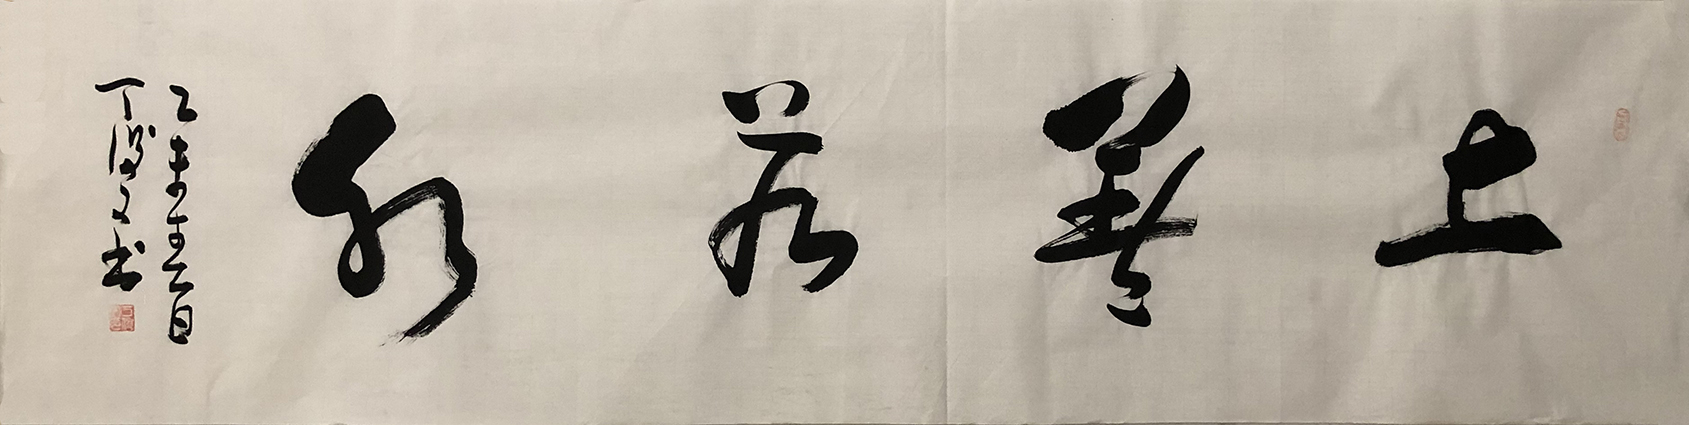 上善若水
乙未春日
丁得文书